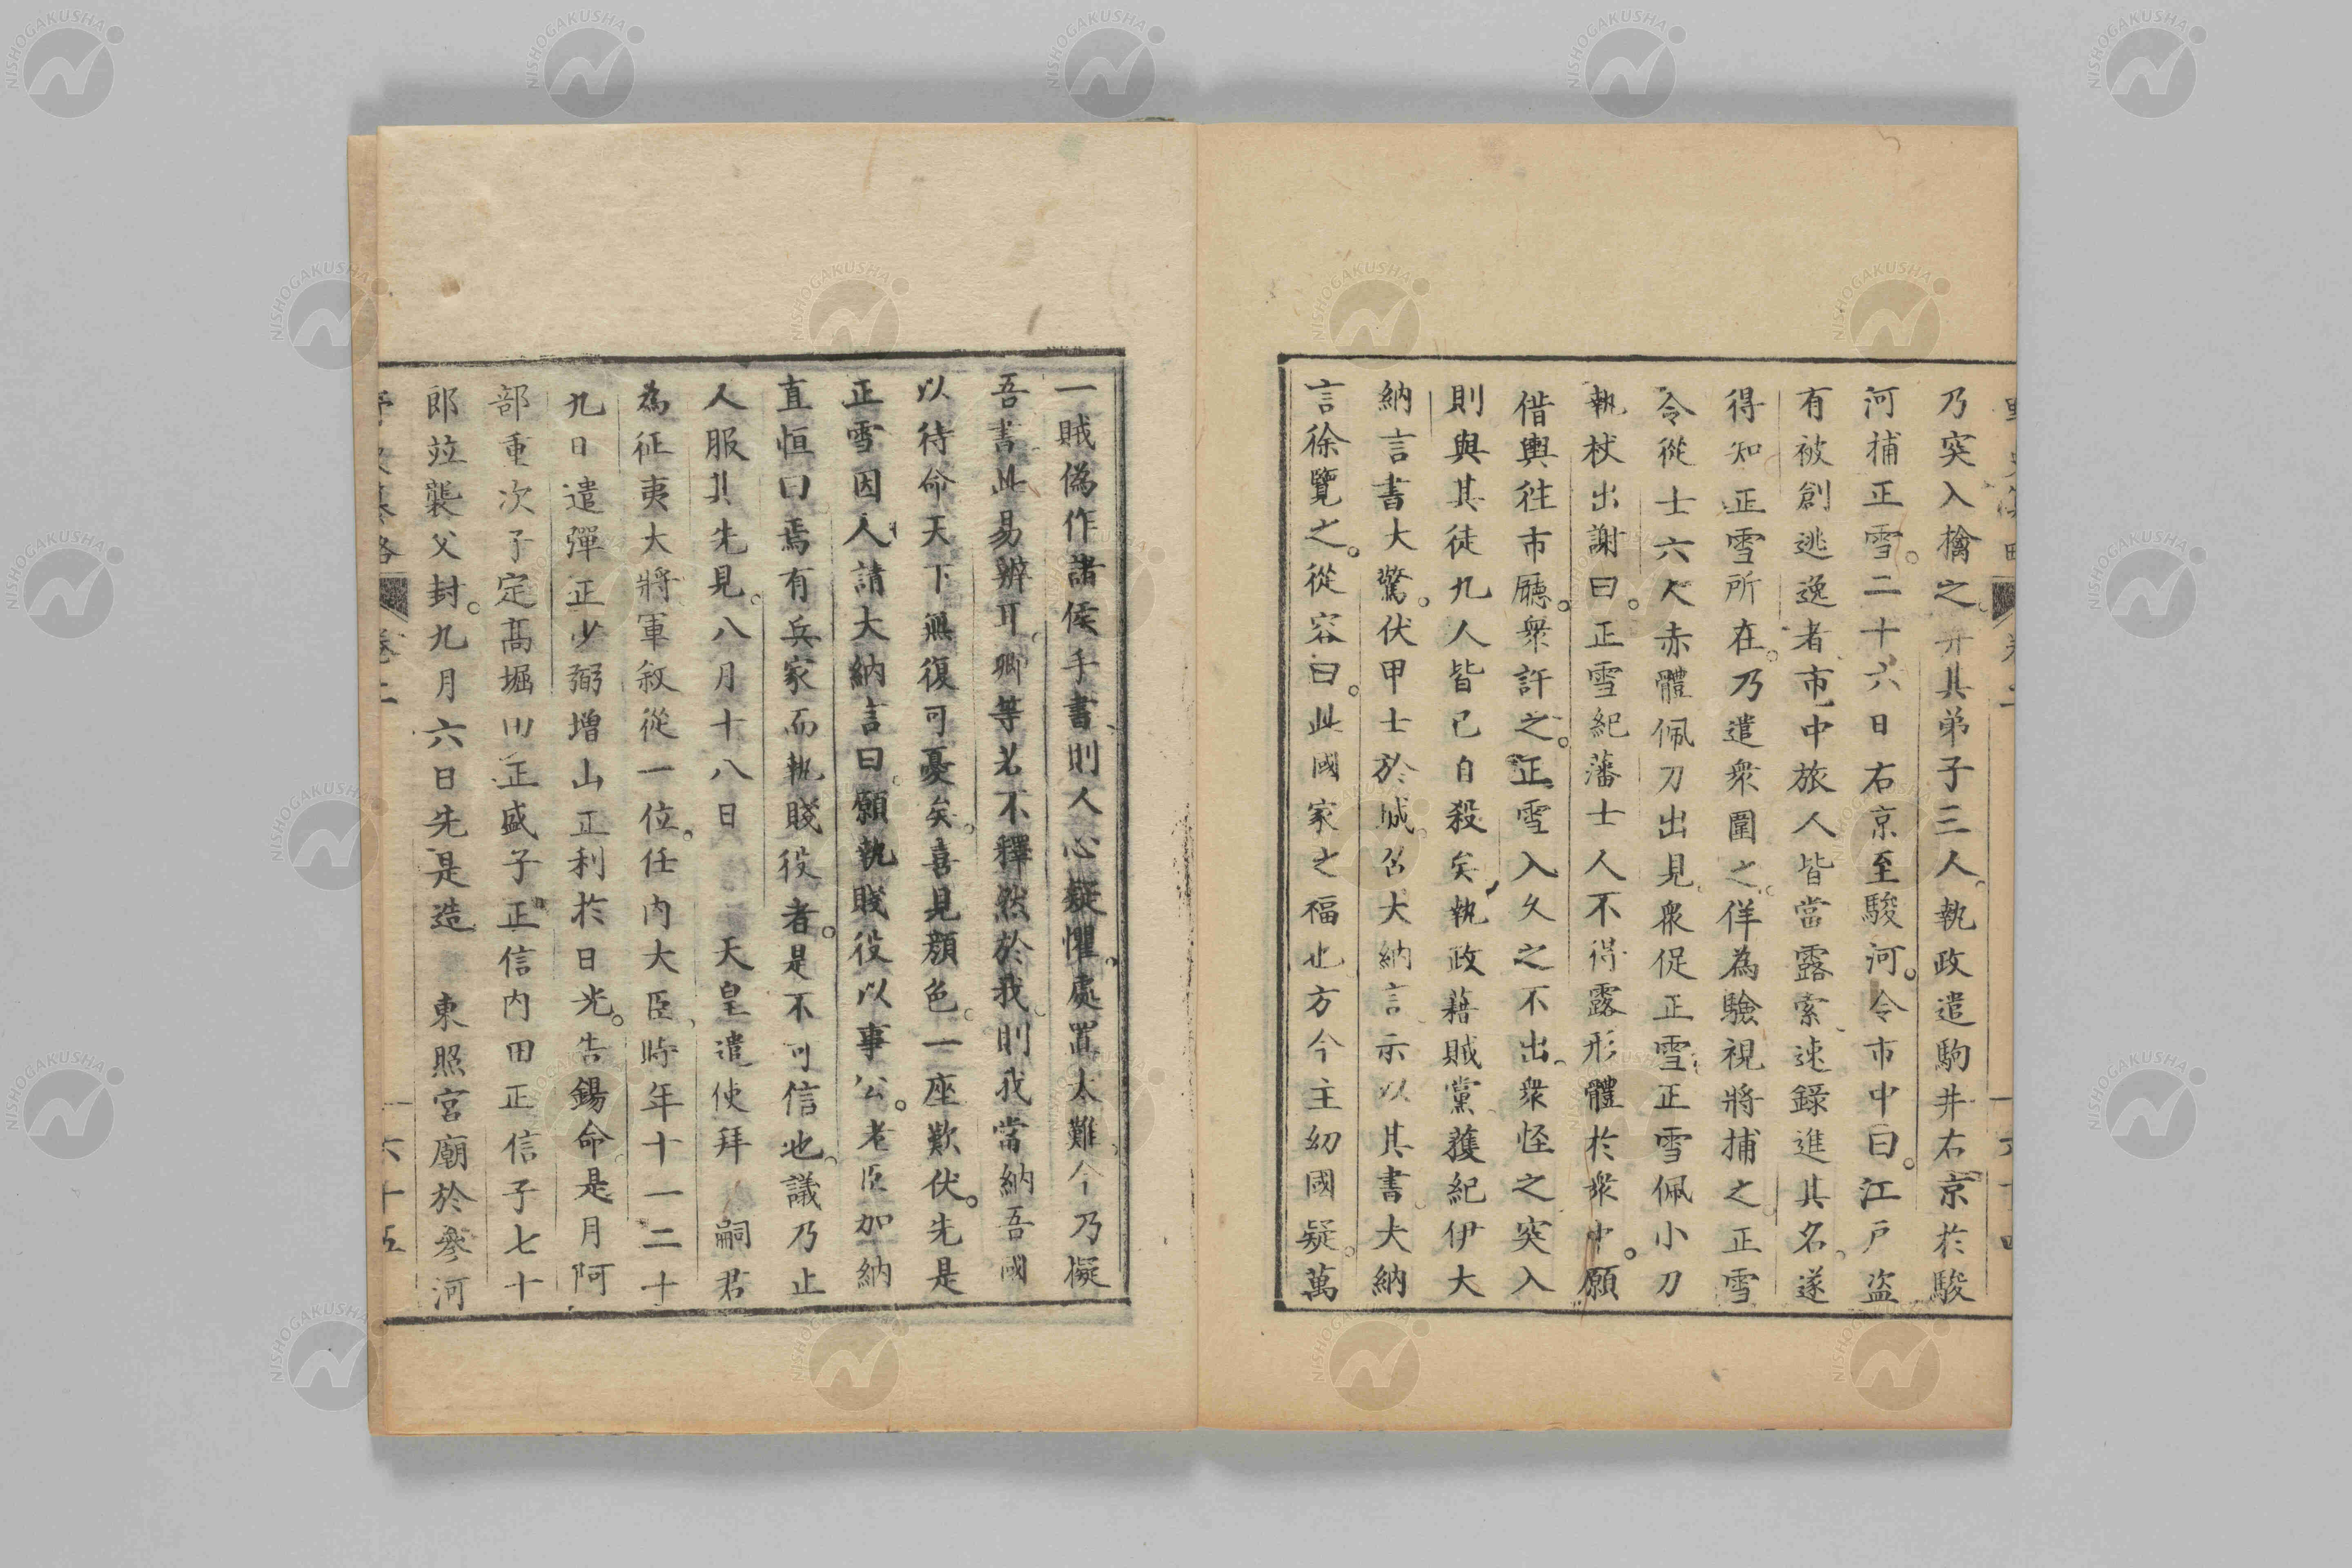 乃突入擒之并其弟子三人執政遣駒井右京於駿
河捕正雪。二十六日右京至駿河。令市中曰。江戸盗
有被創逃逸者市中旅人皆當露索速録進其名。遂
得知正雪所在。乃遣衆圍之。佯為驗視將捕之正雪
令從士六人赤體佩刀出見衆促正雪正雪佩小刀
執杖出謝曰。正雪紀藩士人不得露形體於衆中。願
借輿往市廳。衆許之。正雪入久之不出衆怪之突入
則與其徒九人皆已自殺矣執政藉賊黨獲紀伊大
納言書大驚。伏甲士於城召大納言示以其書大納
言徐覽之。從容曰。此國家之福也方今主幼國疑。萬
一賊偽作諸侯手書則人心疑懼處置太難今乃擬
吾書此易辨耳卿等若不釋然於我則我當納吾國
以待命天下無復可憂矣喜見顔色一座歎伏。先是
正雪因人請大納言曰願執賤役以事公。老臣加納
直恒曰焉有兵家而執賤役者。是不可信也議乃止
人服其先見。八月十八日 天皇遣使拜 嗣君
為征夷大將軍敘從一位。任内大臣時年十一二十
九日遣彈正少弼増山正利於日光。告錫命是月阿
部重次子定髙堀田正盛子正信内田正信子七十
郎竝襲父封。九月六日先是造 東照宮廟於參河
卷二
六十五